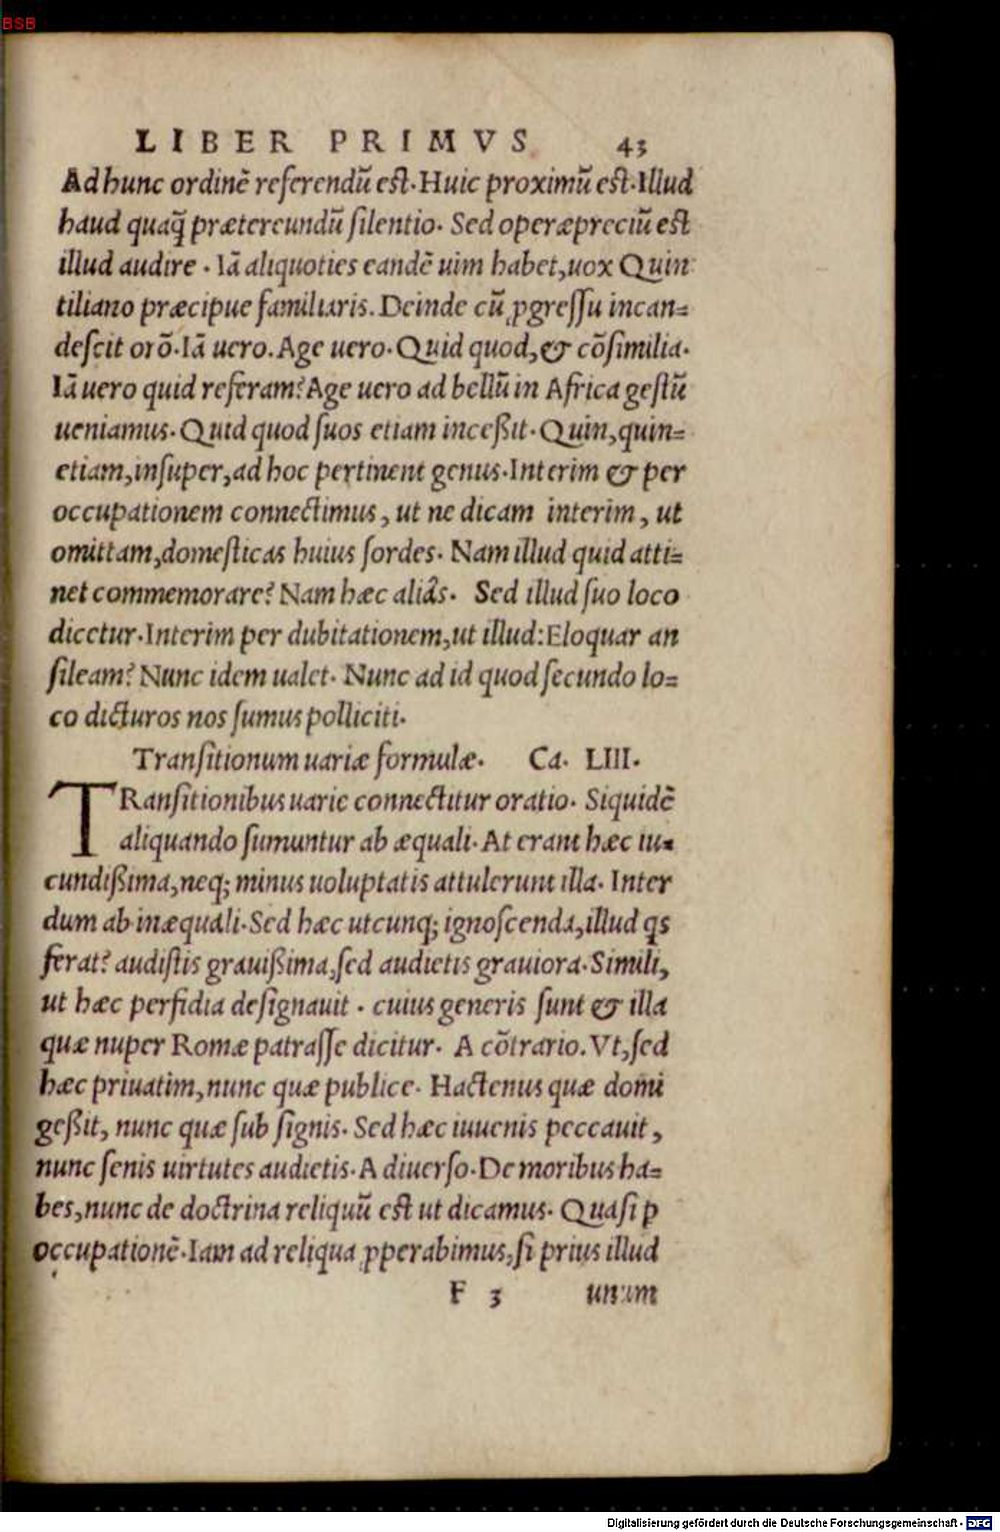 BSB
LIBER PRIMVS 43
Ad hunc ordinē referendū est. Huic proximū est. Illud
haud quaq̃ prætereundū silentio. Sed operæpreciū est
illud audire. Iā aliquoties eandē uim habet, uox Quin
tiliano præcipue familiaris. Deinde cū ꝓgressu incan=
descit orō. Iā uero. Age uero. Quid quod, & cōsimilia.
Iā uero quid referam? Age uero ad bellū in Africa gestū
ueniamus. Quid quod suos etiam inceßit. Quin, quin=
etiam, insuper, ad hoc pertinent genus. Interim & per
occupationem connectimus, ut ne dicam interim, ut
omittam, domesticas huius sordes. Nam illud quid atti=
net commemorare? Nam hæc aliâs. Sed illud suo loco
dicetur. Interim per dubitationem, ut illud: Eloquar an
sileam? Nunc idem ualet. Nunc ad id quod secundo lo=
co dicturos nos sumus polliciti.
Transitionum uariæ formulæ. Ca. LIII.
TRansitionibus uarie connectitur oratio. Siquidē
aliquando sumuntur ab æquali. At erant hæc iu=
cundißima, neq; minus uoluptatis attulerunt illa. Inter
dum ab inæquali. Sed hæc utcunq; ignoscenda, illud qs
ferat? audistis grauißima, sed audietis grauiora. Simili,
ut hæc perfidia designauit. cuius generis sunt & illa
quæ nuper Romæ patrasse dicitur. A cōtrario. Vt, sed
hæc priuatim, nunc quæ publice. Hactenus quæ domi
geßit, nunc quæ sub signis. Sed hæc iuuenis peccauit,
nunc senis uirtutes audietis. A diuerso. De moribus ha=
bes, nunc de doctrina reliquū est ut dicamus. Quasi ꝑ
occupationē. Iam ad reliqua ꝓperabimus, si prius illud
F 3 unum
Digitalisierung gefördert durch die Deutsche Forschungsgemeinschaft - DFG